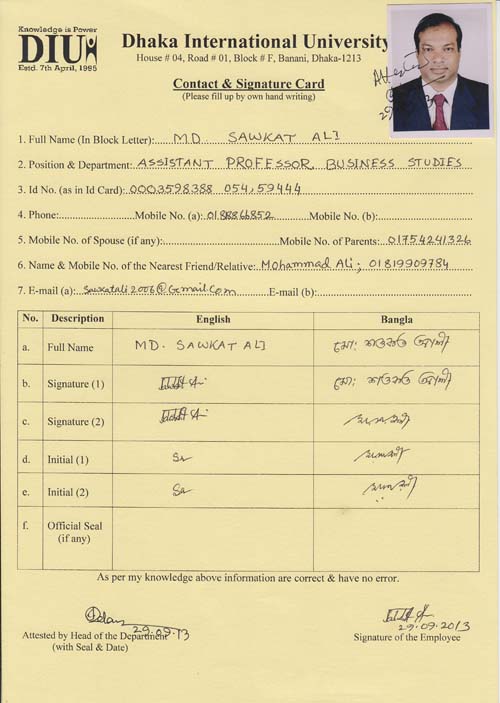 Knowledge is Power
DIU
Estd. 7th April, 1995
Dhaka International University
House # 04, Road # 01, Block # F, Banani, Dhaka-1213
Contact & Signature Card
(Please fill up by own hand writing)
Attested
29
1. Full Name (In Block Letter): MD SAWKAT ALI
2. Position & Department: ASSISTANT PROFESSOR, BUSINESS STUDIES
3. Id No. (as in Id Card): 0003598388 054,59444
4. Phone: Mobile No. (a): Mobile No. (b):
5. Mobile No. of Spouse (if any): Mobile No. of Parents: 01754241326
6. Name & Mobile No. of the Nearest Friend/Relative: Mohammad Ali; 01819909784
7. E-mail (a): sawkatali2006@Gmail.com E-mail (b):
No. Description English Bangla
a. Full Name MD. SAWKAT ALI মো: শওকত আলী
b. Signature (1) মো: শওকত আলী
c. Signature (2)
d. Initial (1) Sa
e. Initial (2) Sa
f. Official Seal
(if any)
As per my knowledge above information are correct & have no error.
29.09.13
29.09.2013
Attested by Head of the Department Signature of the Employee
(with Seal & Date)